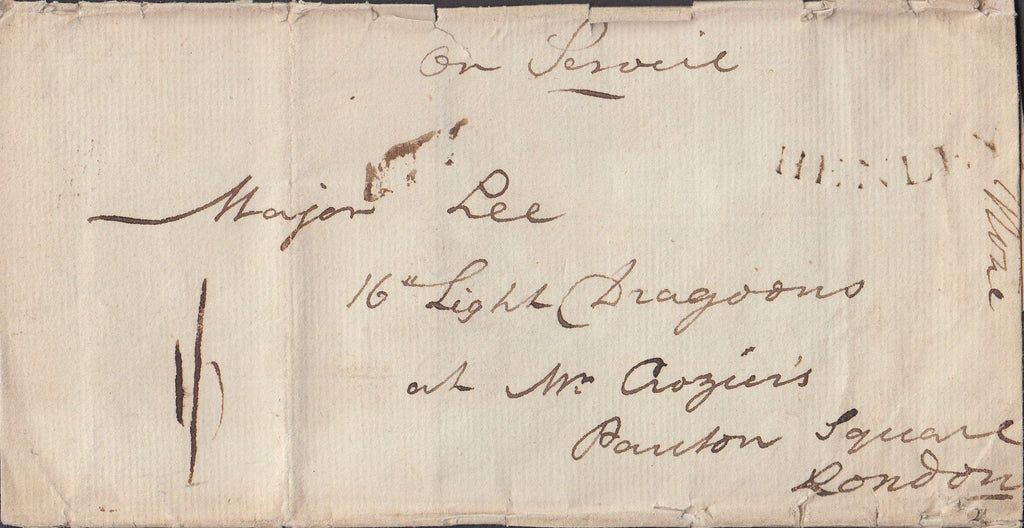 On Service
HENLEY
Major Lee
16th Light Dragoons
at Mr. Crozier's
Panton Square
London